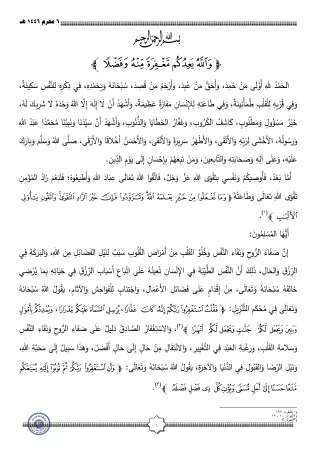 ٦ محرم ١٤٤٦ هـ
بسم الله الرحمن الرحيم
﴿ وَاللَّهُ يَعِدُكُم مَّغْفِرَةً مِّنْهُ وَفَضْلًا ﴾
الحَمْدُ للهِ أَوْلَى مَنْ حُمِدَ، وَأَحَقِّ مَنْ عُبِدَ، وَأَرْحَمِ مَنْ قُصِدَ، سُبْحَانَهُ وَبِحَمْدِهِ، فِي ذِكْرِهِ لِلنَّفْسِ سَكِينَةٌ،
وَفِي قُرْبِهِ لِلْقَلْبِ طُمَأْنِينَةٌ، وَفِي طَاعَتِهِ لِلإِنْسَانِ مَفَازَةٌ عَظِيمَةٌ، وَأَشْهَدُ أَنْ لَا إِلَهَ إِلَّا اللهُ وَحْدَهُ لا شَرِيكَ لَهُ،
خَيْرُ مَسْؤُولٍ وَمَطْلُوبٍ، كَاشِفُ الكُرُوبِ، وَغَفَّارُ الخَطَايَا وَالذُّنُوبِ، وَأَشْهَدُ أَنَّ سَيِّدَنَا وَنَبِيَّنَا مُحَمَّدًا عَبْدُ اللهِ
وَرَسُولُهُ، الأَخْشَى لِرَبِّهِ وَالأَتْقَى، وَالأَطْهَرُ سَرِيرَةً وَالأَنْقَى، وَالأَحْسَنُ أَخْلَاقًا وَالأَرْقَى، صَلَّى اللهُ وَسَلَّمَ وَبَارَكَ
عَلَيْهِ، وَعَلَى آلِهِ وَصَحَابَتِهِ وَالتَّابِعِينَ، وَمَنْ تَبِعَهُمْ بِإِحْسَانٍ إِلَى يَوْمِ الدِّينِ.
أَمَّا بَعْدُ، فَأُوصِيكُمْ وَنَفْسِي بِتَقْوَى اللهِ عَزَّ وَجَلَّ، فَاتَّقُوا اللهَ تَعَالَى عِبَادَ اللهِ وَأَطِيعُوهُ؛ فَلَنِعْمَ زَادُ المُؤْمِنِ
تَقْوَى اللهِ تَعَالَى وَطَاعَتُهُ ﴿ وَمَا تَفْعَلُوا مِنْ خَيْرٍ يَعْلَمْهُ اللَّهُ وَتَزَوَّدُوا فَإِنَّ خَيْرَ الزَّادِ التَّقْوَىٰ وَاتَّقُونِ يَا أُولِي
الْأَلْبَابِ ﴾(١).
أَيُّهَا المُسْلِمُونَ:
إِنَّ صَفَاءَ الرُّوحِ وَنَقَاءَ النَّفْسِ وَخُلُوَّ القَلْبِ مِنْ أَمْرَاضِ القُلُوبِ سَبَبٌ لِنَيْلِ الفَضَائِلِ مِنَ اللهِ، وَالبَرَكَةِ فِي
الرِّزْقِ وَالحَالِ، ذَلِكَ أَنَّ النَّفْسَ الطَّيِّبَةَ فِي الإِنْسَانِ تُعِينُهُ عَلَى اتِّبَاعِ أَسْبَابِ الرِّزْقِ فِي حَيَاتِهِ بِمَا يُرْضِي
خَالِقَهُ سُبْحَانَهُ وَتَعَالَى، مِنْ إِقْدَامٍ عَلَى فَضَائِلِ الأَعْمَالِ، وَاجْتِنَابٍ لِلْفَوَاحِشِ وَالآثَامِ، يَقُولُ اللهُ سُبْحَانَهُ
وَتَعَالَى فِي مُحْكَمِ التَّنْزِيلِ: ﴿ فَقُلْتُ اسْتَغْفِرُوا رَبَّكُمْ إِنَّهُ كَانَ غَفَّارًا ، يُرْسِلِ السَّمَاءَ عَلَيْكُم مِّدْرَارًا ، وَيُمْدِدْكُم بِأَمْوَالٍ
وَبَنِينَ وَيَجْعَل لَّكُمْ جَنَّاتٍ وَيَجْعَل لَّكُمْ أَنْهَارًا ﴾(٢)، وَالاسْتِغْفَارُ الصَّادِقُ دَلِيلٌ عَلَى صَفَاءِ الرُّوحِ وَنَقَاءِ النَّفْسِ
وَسَلَامَةِ القَلْبِ، وَرَغْبَةِ العَبْدِ فِي التَّغْيِيرِ، وَالانْتِقَالِ مِنْ حَالٍ إِلَى حَالٍ أَفْضَلَ، وَهَذَا سَبِيلٌ إِلَى مَحَبَّةِ اللهِ،
وَنَيْلِ الرِّضَا وَالقَبُولِ فِي الدُّنْيَا وَالآخِرَةِ، يَقُولُ اللهُ سُبْحَانَهُ وَتَعَالَى: ﴿ وَأَنِ اسْتَغْفِرُوا رَبَّكُمْ ثُمَّ تُوبُوا إِلَيْهِ يُمَتِّعْكُم
مَّتَاعًا حَسَنًا إِلَىٰ أَجَلٍ مُّسَمًّى وَيُؤْتِ كُلَّ ذِي فَضْلٍ فَضْلَهُ ﴾(٣).